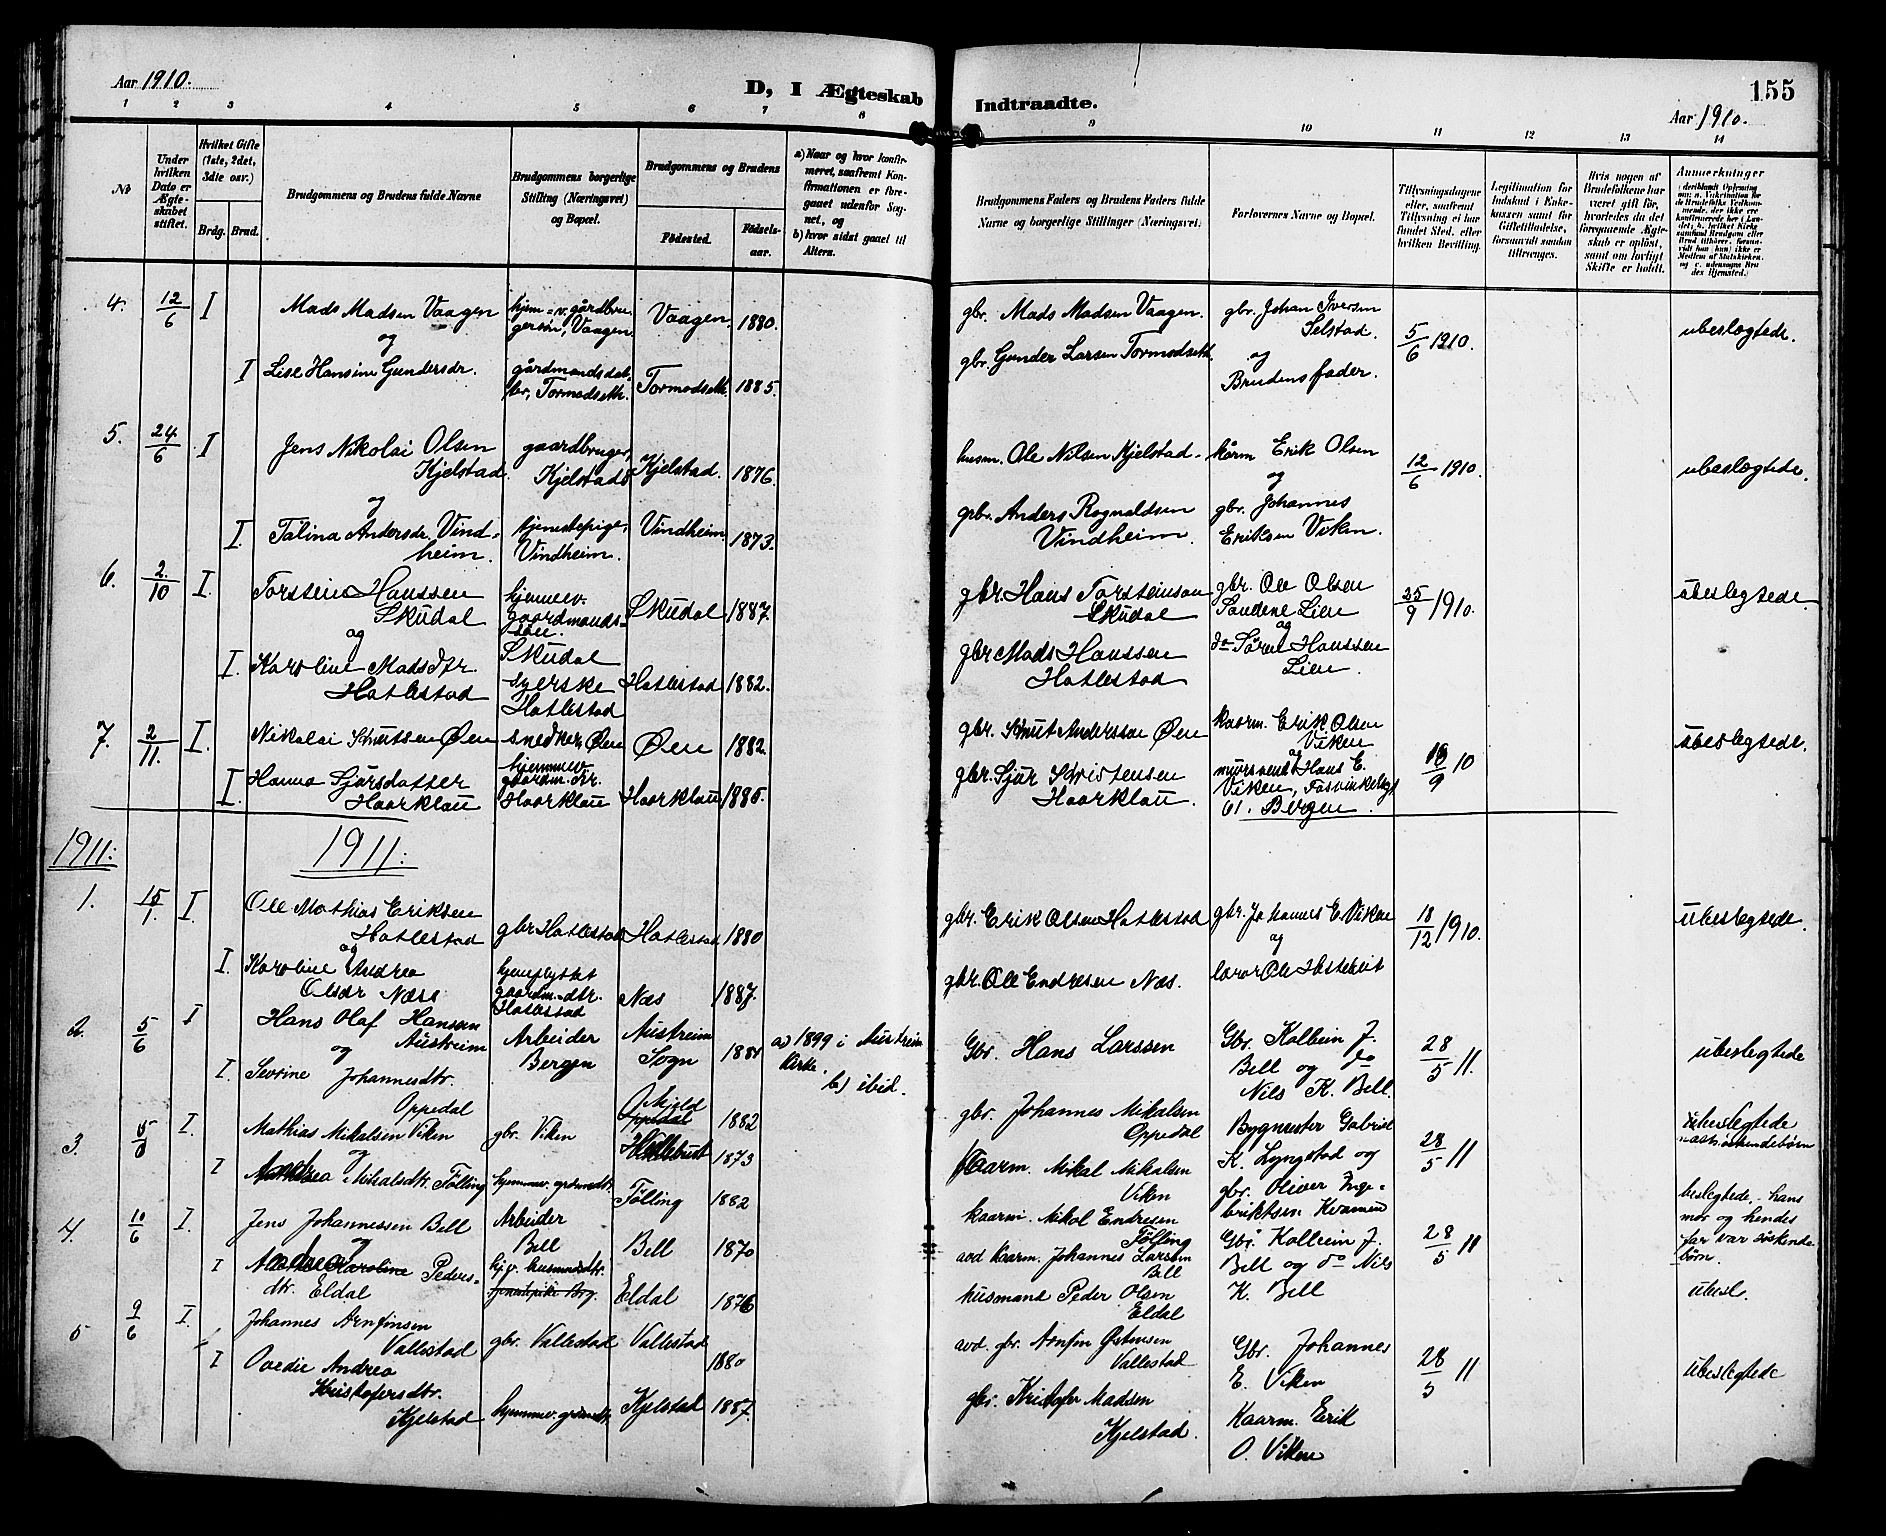 Aar 1910.
D, I Ægteskab Indtraadte.
155
Aar 1910.
1 2 3 4 5 6 7 8 9 10 11 12 13 14
No
Under hvilken Dato er Ægteskabet stiftet.
Hvilket Gifte (1ste, 2det, 3die osv.)
Brdg. Brud.
Brudgommens og Brudens fulde Navne
Brudgommens borgerlige Stilling (Næringsvei) og Bopæl.
Brudgommens og Brudens
Fødested.
Fødselsaar.
a) Naar og hvor konfirmeret, saafremt Konfirmationen er foregaaet udenfor Sognet, og
b) hvor sidst gaaet til Alters.
Brudgommens Faders og Brudens Faders fulde Navne og borgerlige Stillinger (Næringsvei.
Forlovernes Navne og Bopæl.
Tillysningsdagene eller, saafremt Tillysning ei har fundet Sted, efter hvilken Bevilling.
Legitimation for Indskud i Enkekassen samt for Giftetilladelse, forsaavidt saadan tiltrænges.
Hvis nogen af Brudefolkene har været gift før, hvorledes da det foregaaende Ægteskab er opløst, samt om lovligt Skifte er holdt.
Anmerkninger
4. 12/6 I Mads Madsen Vaagen
hjem.v. gårdbrugersøn, Vaagen
Vaagen 1880.
gbr. Mads Madsen Vaagen.
gbr. Johan Iversen Selstad.
5/6 1910.
ubeslægtede.
og
I Lise Hansine Gundersdr.
gårdmandsdatter, Tormodseth.
Tormodseth 1885.
gbr. Gunder Larsen Tormodseth
og
Brudens fader.
5. 24/6 I Jens Nikolai Olsen Kjelstad
gaardbruger, Kjelstad
Kjelstad. 1876.
husm. Ole Nilsen Kjelstad
kårm Erik Olsen
12/6 1910.
ubeslægtede.
og
I. Talina Andersdr. Vindheim.
tjenestepige, Vindheim.
Vindheim 1873.
gbr. Anders Rognaldsen Vindheim.
og
gbr. Johannes Eriksen Viken.
6. 2/10 I. Torstein Hanssen Skudal
hjemmev. gaardmandssøn. Skudal
Skudal 1887.
gbr. Hans Torsteinson Skudal
gbr. Ole Olsen Sandene Lien
25/9 1910.
ubeslegtede.
og
I. Karoline Madsdtr. Hatlestad
syerske Hatlestad
Hatlestad 1882.
gbr Mads Hanssen Hatlestad
og
do Søren Hanssen Lien.
7. 2/11. I. Nikolai Knutsen Øen
snedker, Øen
Øen 1882.
gbr. Knut Anderssen Øen
kaarm. Erik Olsen Viken
9 10
ubeslegtede.
I. Hanna Sjursdatter Haarklau
hjemmev. gaardm.dtr. Haarklau
Haarklau 1885.
gbr. Sjur Kristensen Haarklau.
og
Hans E. Viken,
61. Bergen.
1911: 1911:
1. 15/1. I. Ole Mathias Eriksen Hatlestad
gbr Hatlestad
Hatlestad 1880
gbr. Erik Olsen Hatlestad
gbr. Johannes E. Viken
18/12 1910.
ubeslegtede.
og
I. Karoline Andrea Olsdr Næss
gaardm.dtr. Hatlestad
Næs 1887.
gbr. Ole Endresen Næs.
og
lærer Ole
2. 5/6 I Hans Olaf Hansen Austreim
Arbeider Bergen
Austreim Sogn 1884
a) 1899 i Austreim Kirke.
b) ibid.
Gbr. Hans Larssen
Gbr. Kolbein J. Bell og do Nils K. Bell.
28/5 11.
ubeslegtede
og
I. Sevrine Johannesdtr. Oppedal
Oppedal 1882
gbr. Johannes Mikalsen Oppedal
3. I. Mathias Mikalsen Viken
gbr. Viken
1873
Kaarm. Mikal Mikalsen Viken
Bygmester Gabriel K. Lyngstad og gbr. Oliver Ingebriktsen Kvamme
28/5 11
beslegtede, hans mor og hendes far var søskendebørn.
og
I Andrea Mikalsdtr. Følling
hjemmev. grdmdtr.
Følling 1882
kaarm. Mikal Endresen Følling
4. 10/6 I. Jens Johannessen Bell
Arbeider Bell
Bell 1870
avd Kaarm. Johannes Larsen Bell
Gbr Kolbein J. Bell og do Nils K. Bell
28/5 11
ubesl.
og
I Karoline Pedersdtr. Eldal
hjv. husmdsdtr.
Eldal 1876
husmand Peder Olsen Eldal
5 9/6 I. Johannes Arnfinsen Vallestad
gbr. Vallestad
Vallestad 1880
avd. gbr. Arnfin Østensen Vallestad
Gbr. Johannes E. Viken
28/5 11
ubeslegtede
I Ovedie Andrea Kristofersdtr. Kjelstad
hjemmev. grdmdtr.
Kjelstad 1887.
gbr. Kristofer Madsen Kjelstad.
Kaarm. Erik O. Viken